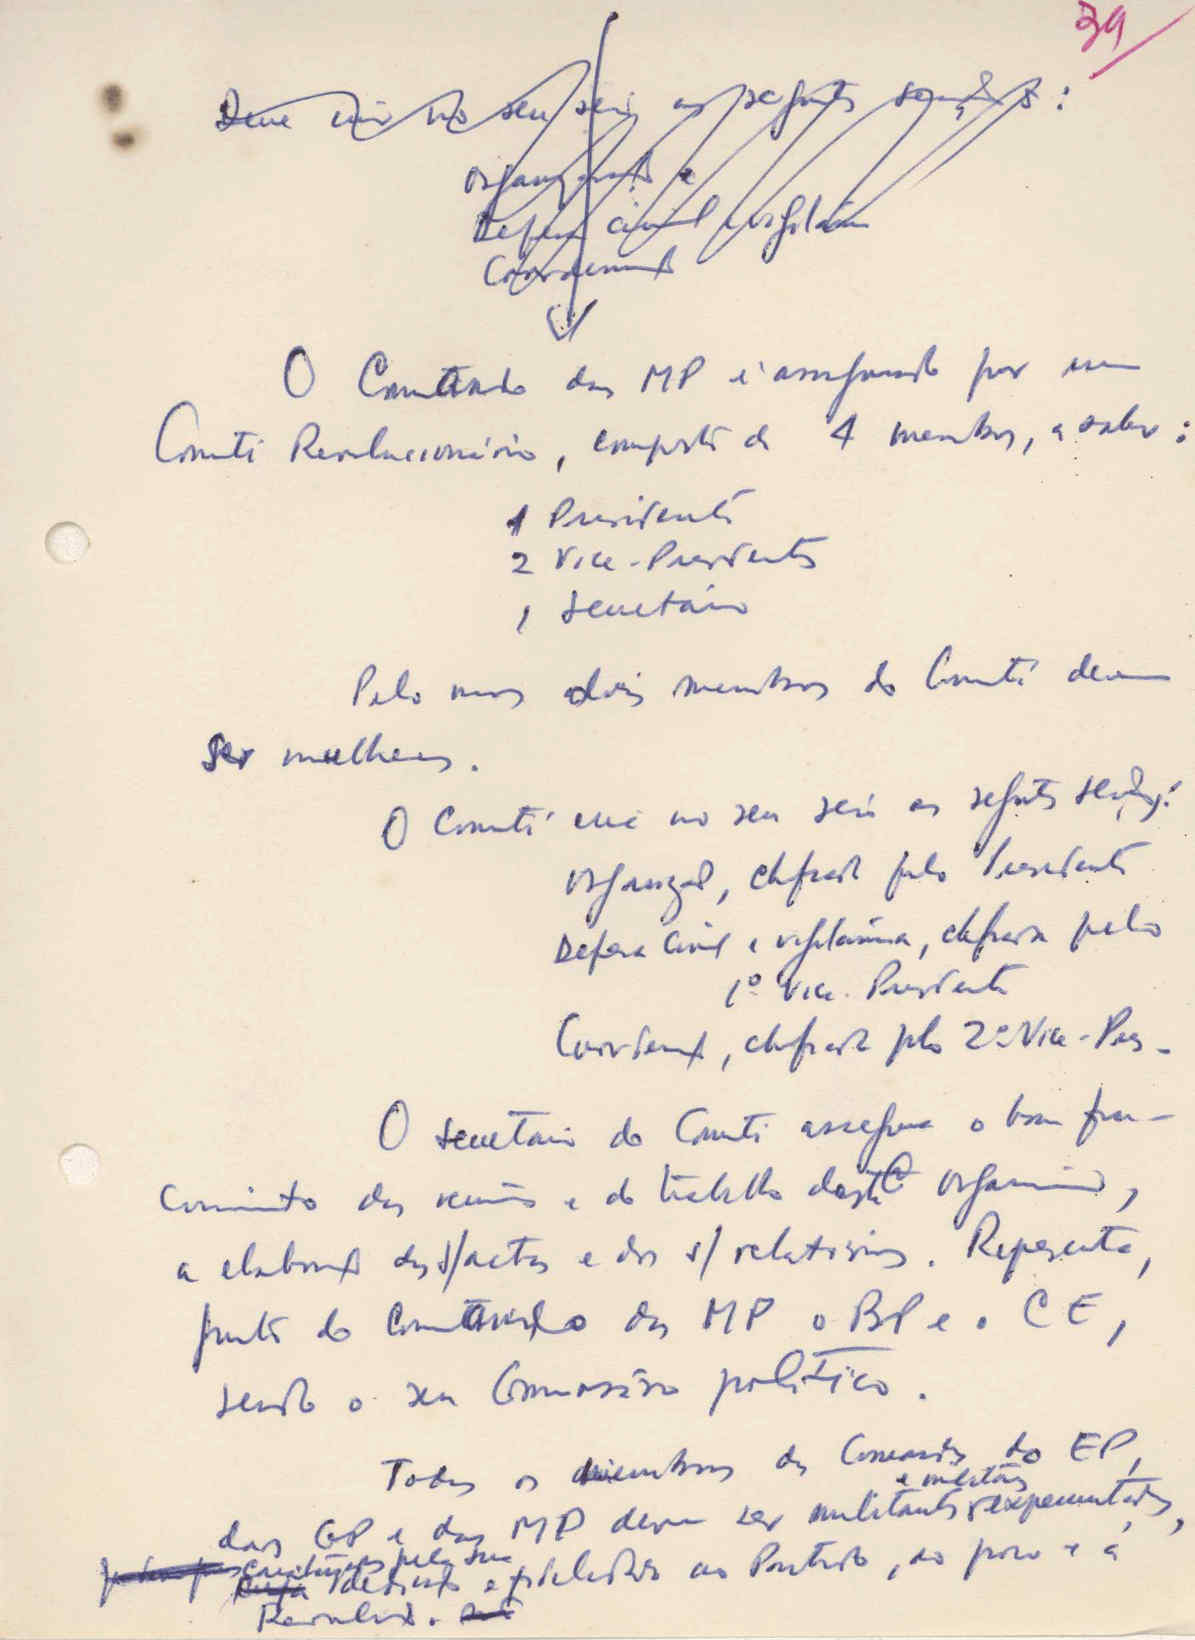 39
Deve criar no seu seio as seguintes secções:
Organização e
Defesa civil e vigilância
Coordenação
O Comando das MP é assegurado por um
Comité Revolucionário, composto de 4 membros, a saber:
1 Presidente
2 Vice-Presidentes
1 Secretário
Pelo menos dois membros do Comité devem
ser mulheres.
O Comité cria no seu seio as seguintes secções:
Organização, chefiada pelo Presidente
Defesa Civil e vigilância, chefiada pelo
1º Vice-Presidente
Coordenação, chefiada pelo 2º Vice-Pres.
O secretário do Comité assegura o bom fun-
cionamento das reuniões e do trabalho deste organismo,
a elaboração das s/actas e dos s/ relatórios. Representa,
junto do Comando das MP o BP e o CE,
sendo o seu Comissário político.
Todos os membros dos Comandos do EP,
das GP e das MP devem ser militantes experimentados,
e militares
pela sua
dedicação e fidelidade ao Partido, ao povo e à
Revolução.